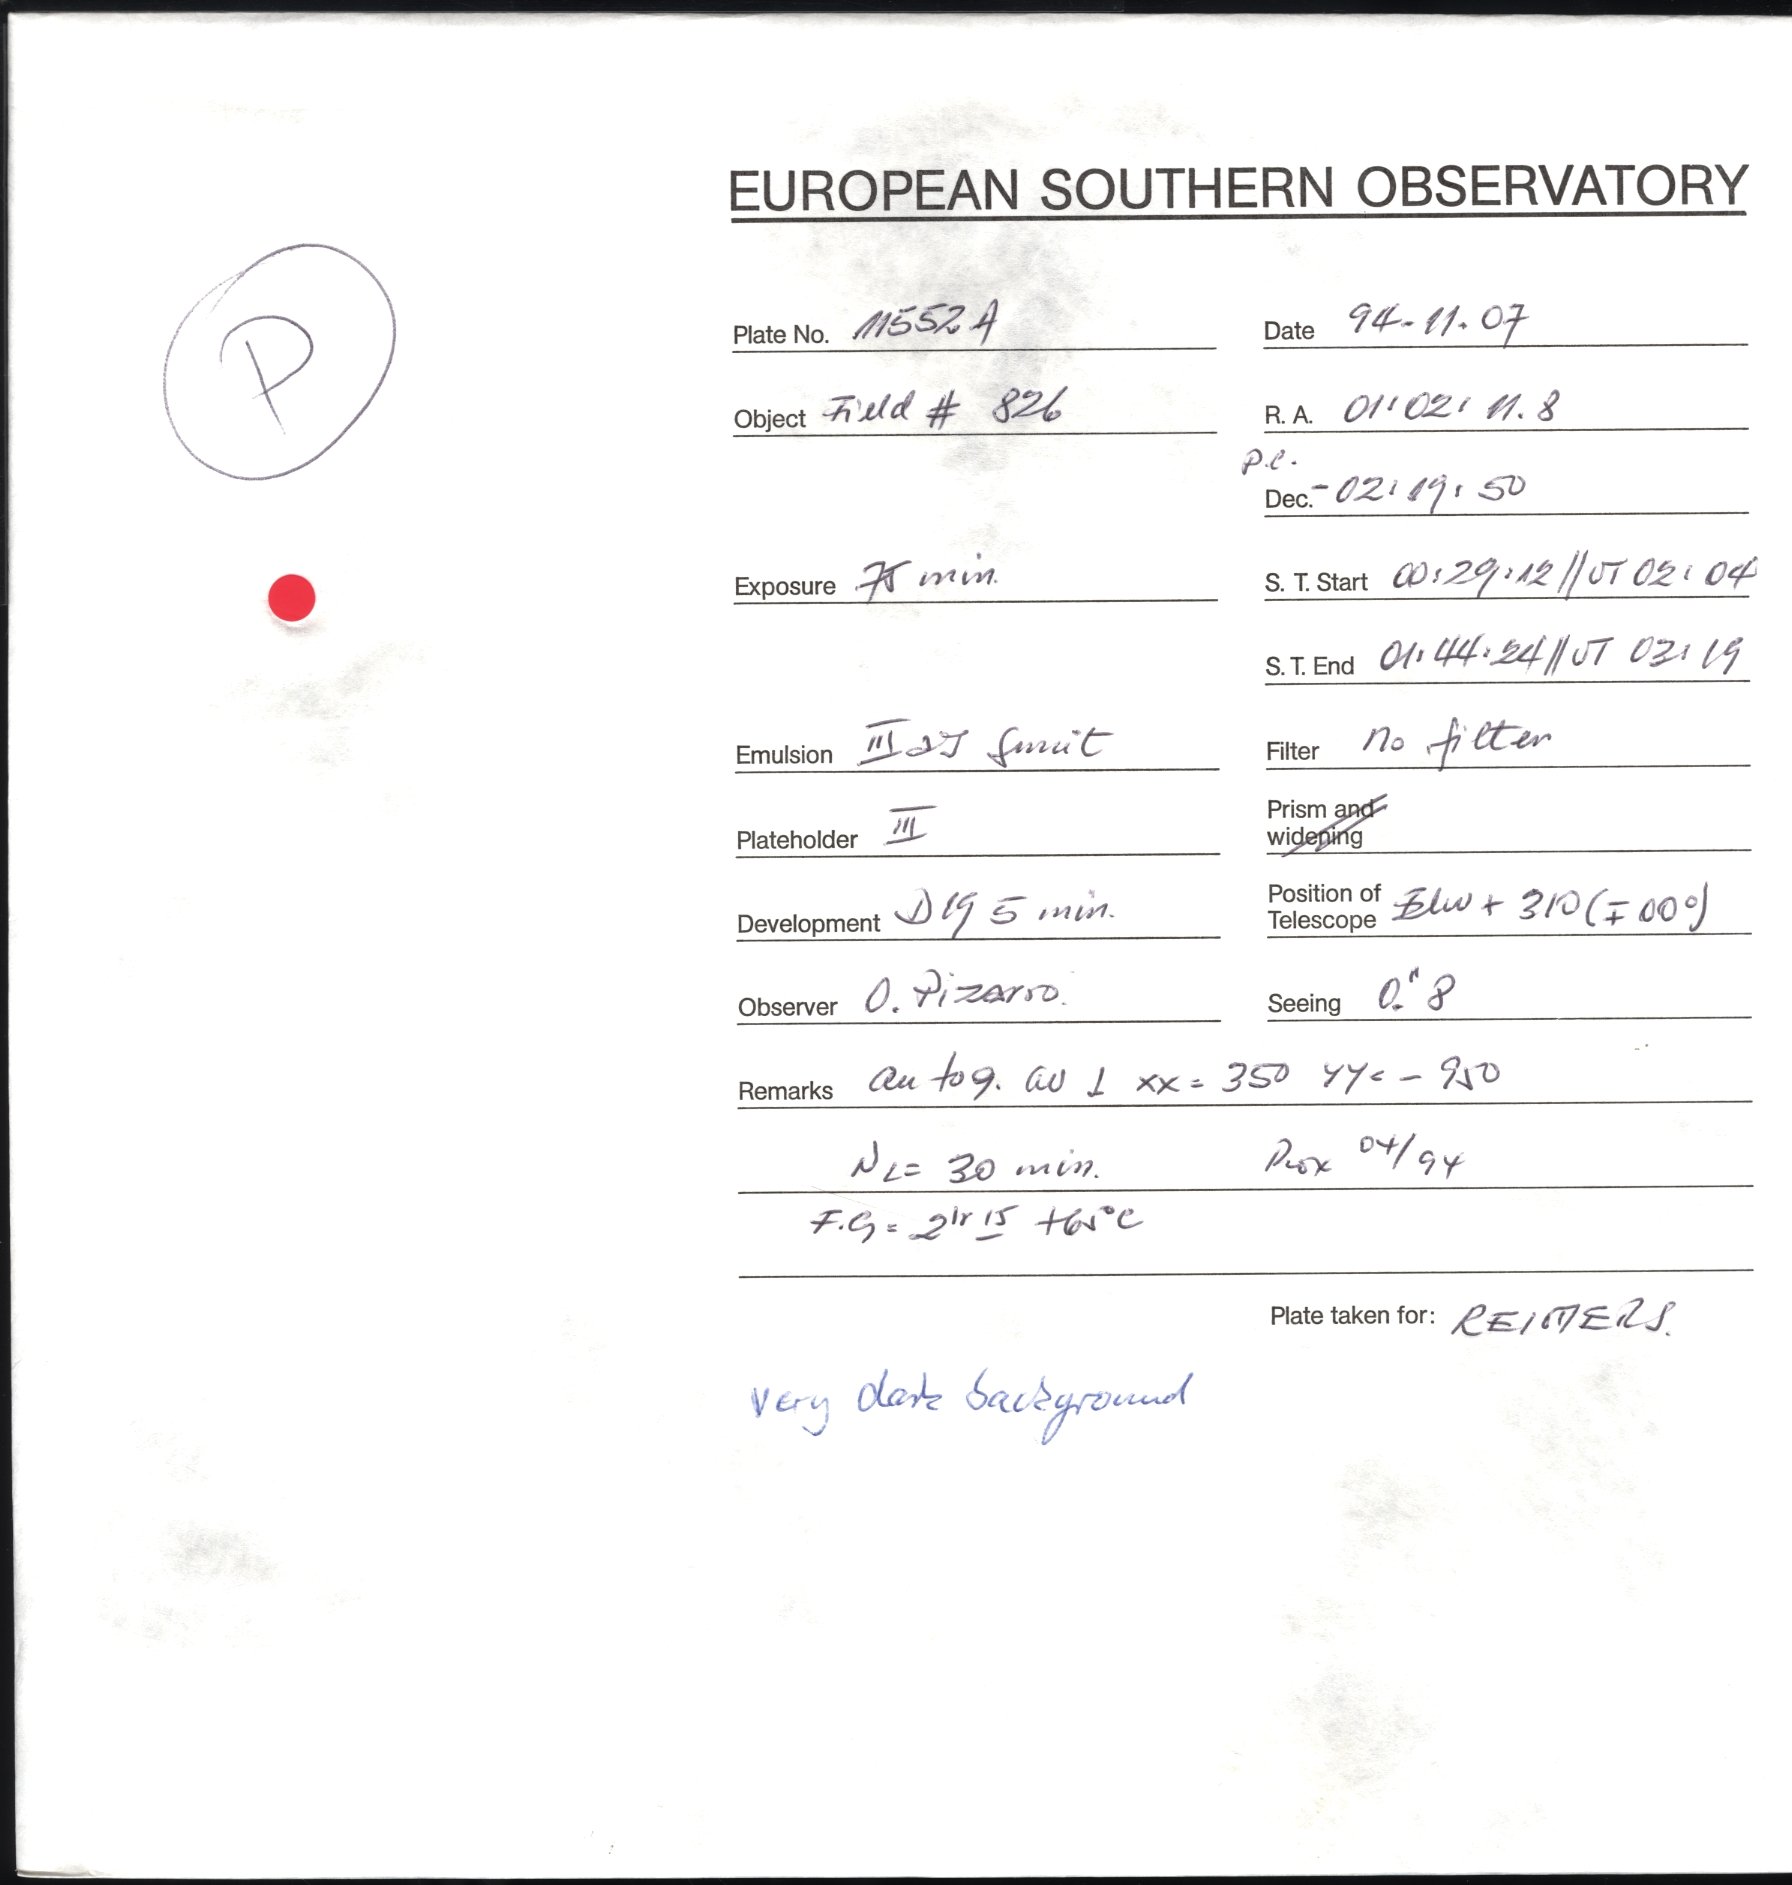 EUROPEAN SOUTHERN OBSERVATORY
P
Plate No. 11552 A Date 94-11-07
Object Field # 826 R. A. 01:02:11.8
P.C.
Dec. -02:19:50
Exposure 75 min. S. T. Start 00:29:12 // UT 02:04
S. T. End 01:44:24 // UT 03:19
Emulsion III aJ Filter no filter
Plateholder III Prism and
widening
Development D19 5 min. Position of
Telescope + 310 (∓ 00°)
Observer O. Pizarro. Seeing 0."8
Remarks autog. xx = 350 YY = - 950
NL = 30 min. 04/94
F.G = 2hr 15 +65°C
Plate taken for: REIMERS.
very dark background